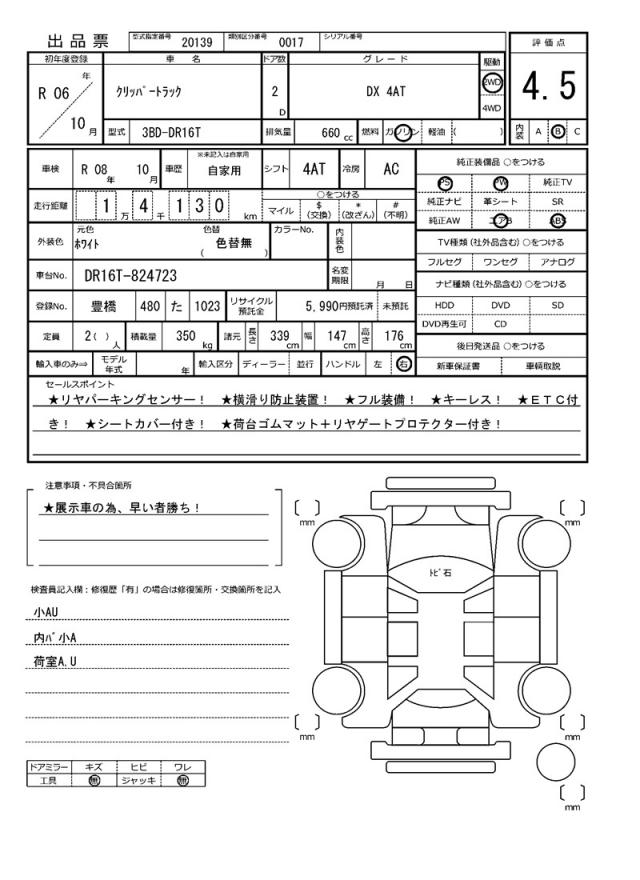 出品票 型式指定番号 20139 類別区分番号 0017 シリアル番号
評価点
4.5
内装 A B C
初年度登録 車名 ドア数 グレード 駆動
R 06 年 10 月
クリッパートラック 2 D DX 4AT 2WD 4WD
型式 3BD-DR16T 排気量 660 cc 燃料 ガソリン 軽油 ( )
車検 R 08 年 10 月 車歴 ※未記入は自家用 自家用 シフト 4AT 冷房 AC
走行距離 1 万 4 千 1 3 0 km
○をつける
マイル $(交換) *(改ざん) #(不明)
外装色 元色 ホワイト 色替 色替無 ( ) カラーNo. 内装色
車台No. DR16T-824723 名変期限 月 日
登録No. 豊橋 480 た 1023 リサイクル預託金 5,990円預託済 未預託
定員 2( ) 人 積載量 350 kg 諸元 長さ 339 cm 幅 147 cm 高さ 176 cm
輸入車のみ⇒ モデル年式 年 輸入区分 ディーラー 並行 ハンドル 左 右
純正装備品 ○をつける
PS PW 純正TV
純正ナビ 革シート SR
純正AW エアB ABS
TV種類(社外品含む)○をつける
フルセグ ワンセグ アナログ
ナビ種類(社外品含む)○をつける
HDD DVD SD
DVD再生可 CD
後日発送品 ○をつける
新車保証書 車輌取説
セールスポイント
★リヤパーキングセンサー! ★横滑り防止装置! ★フル装備! ★キーレス! ★ETC付
き! ★シートカバー付き! ★荷台ゴムマット+リヤゲートプロテクター付き!
注意事項・不具合箇所
★展示車の為、早い者勝ち!
検査員記入欄:修復歴「有」の場合は修復箇所・交換箇所を記入
小AU
内バ小A
荷室A.U
ドアミラー キズ ヒビ ワレ
工具 無 ジャッキ 無
トビ石
mm
mm
mm
mm
mm